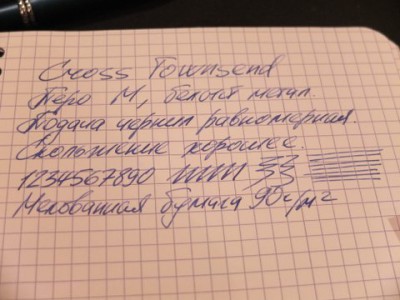 Cross Townsend
Перо М, белый метал.
Подача чернил равномерная.
Скольжение хорошее.
1234567890
Мелованная бумага 90 г/м²